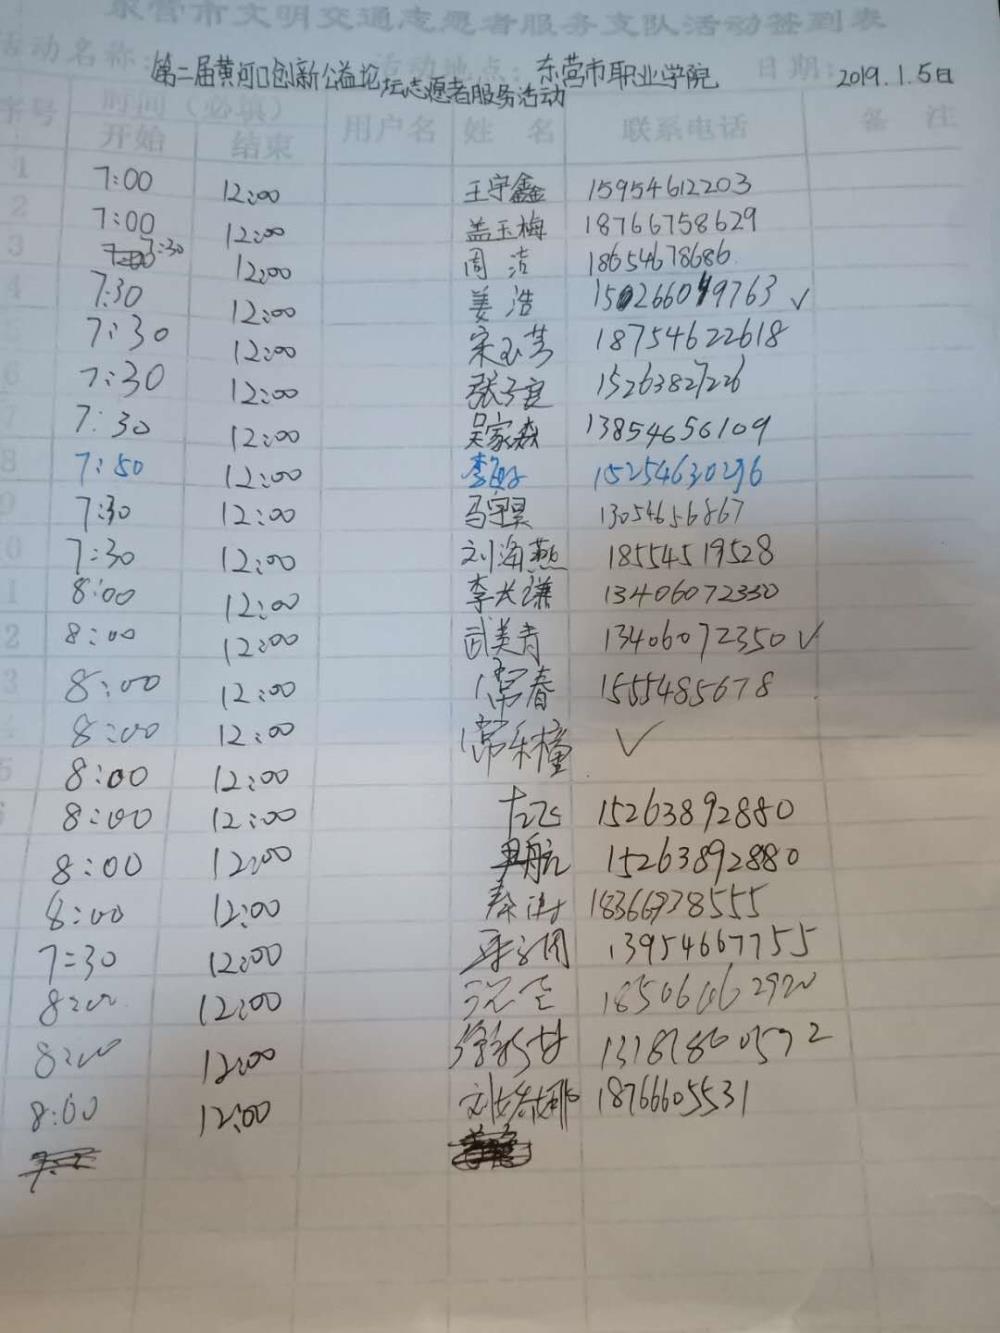 东营市文明交通志愿者服务支队活动签到表
活动名称: 第二届黄河口创新公益论坛志愿者服务活动 活动地点: 东营市职业学院 日期: 2019.1.5日
序号 时间(必填) 用户名 姓名 联系电话 备注
开始 结束
1 7:00 12:00 王宇鑫 15954612203
2 7:00 12:00 盖玉梅 18766758629
3 7:30 12:00 周洁 18654678686
4 7:30 12:00 姜浩 150266019763 ✓
5 7:30 12:00 宋玉芳 18754622618
6 7:30 12:00 15263827226
7 7:30 12:00 吴家森 13854656109
8 7:50 12:00 15254630296
9 7:30 12:00 马守昊 13054656867
10 7:30 12:00 刘海燕 18554519528
11 8:00 12:00 李长谦 13406072350
12 8:00 12:00 武美青 13406072350 ✓
13 8:00 12:00 常春 1555485678
8:00 12:00 常禾橦 ✓
15 8:00 12:00
16 8:00 12:00 15263892880
8:00 12:00 15263892880
8:00 12:00 18366938555
7:30 12:00 13954667755
8:00 12:00
8:00 12:00 13181860592
8:00 12:00 刘娜娜 18766605531